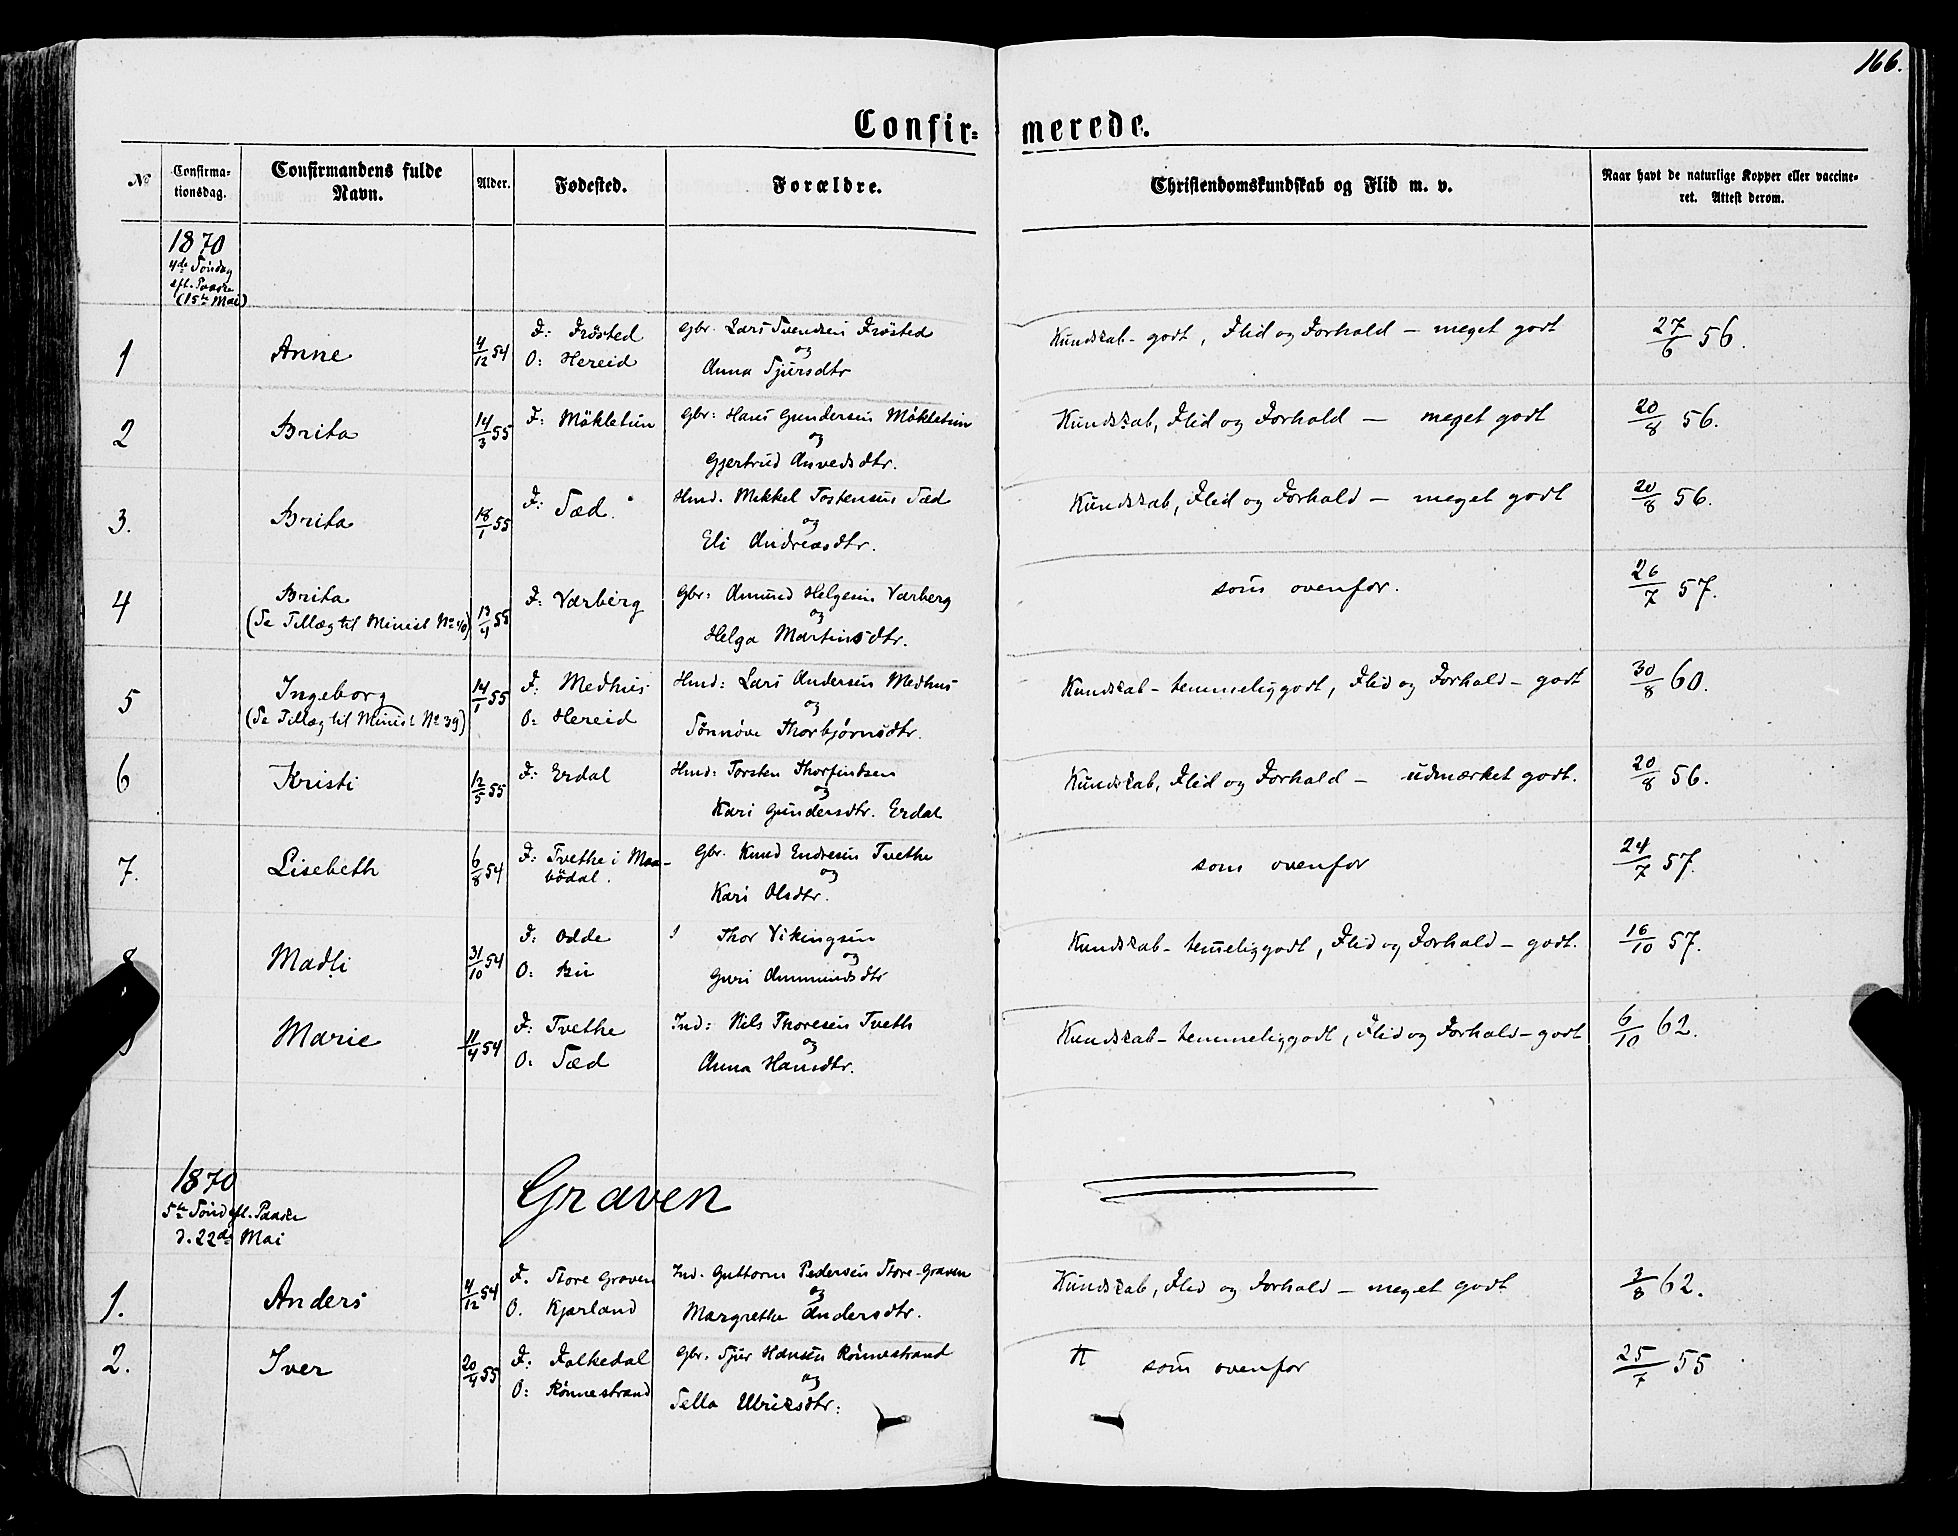 166.
Confir= merede.
No
Confirma-
tionsdag.
Confirmandens fulde
Navn.
Alder.
Fødested.
Forældre.
Christendomskundskab og Flid m. v.
Naar havt de naturlige Kopper eller vaccine-
ret. Attest derom.
1870
4de Söndag
eft. Paaske
(15de Mai)
1 Anne 4/12 54 F: Frösted O: Hereid
Gbr. Lars Svendsen Frösted
og
Anna Sjursdtr
Kundskab - godt, Flid og Forhold - meget godt 27/6 56.
2 Brita 14/3 55 F: Mökletun
Gbr: Hans Gundersen Mökletun
og
Gjertrud Anvedsdtr.
Kundskab, Flid og Forhold - meget godt 20/8 56.
3. Brita 18/1 55 F: Sæd.
Hmd. Mikkel Tostensen Sæd
og
Eli Andreasdtr.
Kundskab, Flid og Forhold - meget godt 20/8 56.
4 Brita 13/4 55 F: Varberg
(Se Tillæg til Minist No 40)
Gbr: Amund Helgesen Varberg
og
Helga Martinsdtr.
som ovenfor. 26/7 57.
5 Ingeborg 14/1 55 F: Medhus O: Hereid
(Se Tillæg til Minist No 39)
Hmd: Lars Andersen Medhus
og
Sönnöve Thorbjörnsdtr.
Kundskab - temmeliggodt, Flid og Forhold - godt 30/8 60.
6 Kristi 12/5 55 F: Erdal
Hmd: Torsten Thorfindsen
og
Kari Gundersdtr. Erdal
Kundskab, Flid og Forhold - udmærket godt. 20/8 56.
7. Lisebeth 6/8 54 F: Tvethe i Maa-
bödal.
Gbr. Knud Endresen Tvethe
og
Kari Olsdtr.
som ovenfor 24/7 57.
8 Madli 31/10 54 F: Odde O: Bu
Thor Vikingsen
og
Guri Ammundsdtr
Kundskab - temeliggodt, Flid og Forhold - godt. 16/10 57.
Marie 11/4 54 F: Tvethe O: Sæd
Ind: Nils Thoresen Tveth
og
Anna Hansdtr.
Kundskab - temmeliggodt, Flid og Forhold - godt 6/10 62.
1870
5te Sönd eft. Paaske
d. 22de Mai
Graven
1. Anders 4/12 54 F. Store Graven O. Kjærland
Ind. Guttorm Pedersen Store-Graven
og
Margrethe Andersdtr.
Kundskab, Flid og Forhold - meget godt 3/8 62.
2. Iver 20/4 55 F: Folkedal O: Rönnestrand
Gbr. Sjur Hansen Rönnestrand
og
Sella Ulriksdtr:
som ovenfor 25/7 55